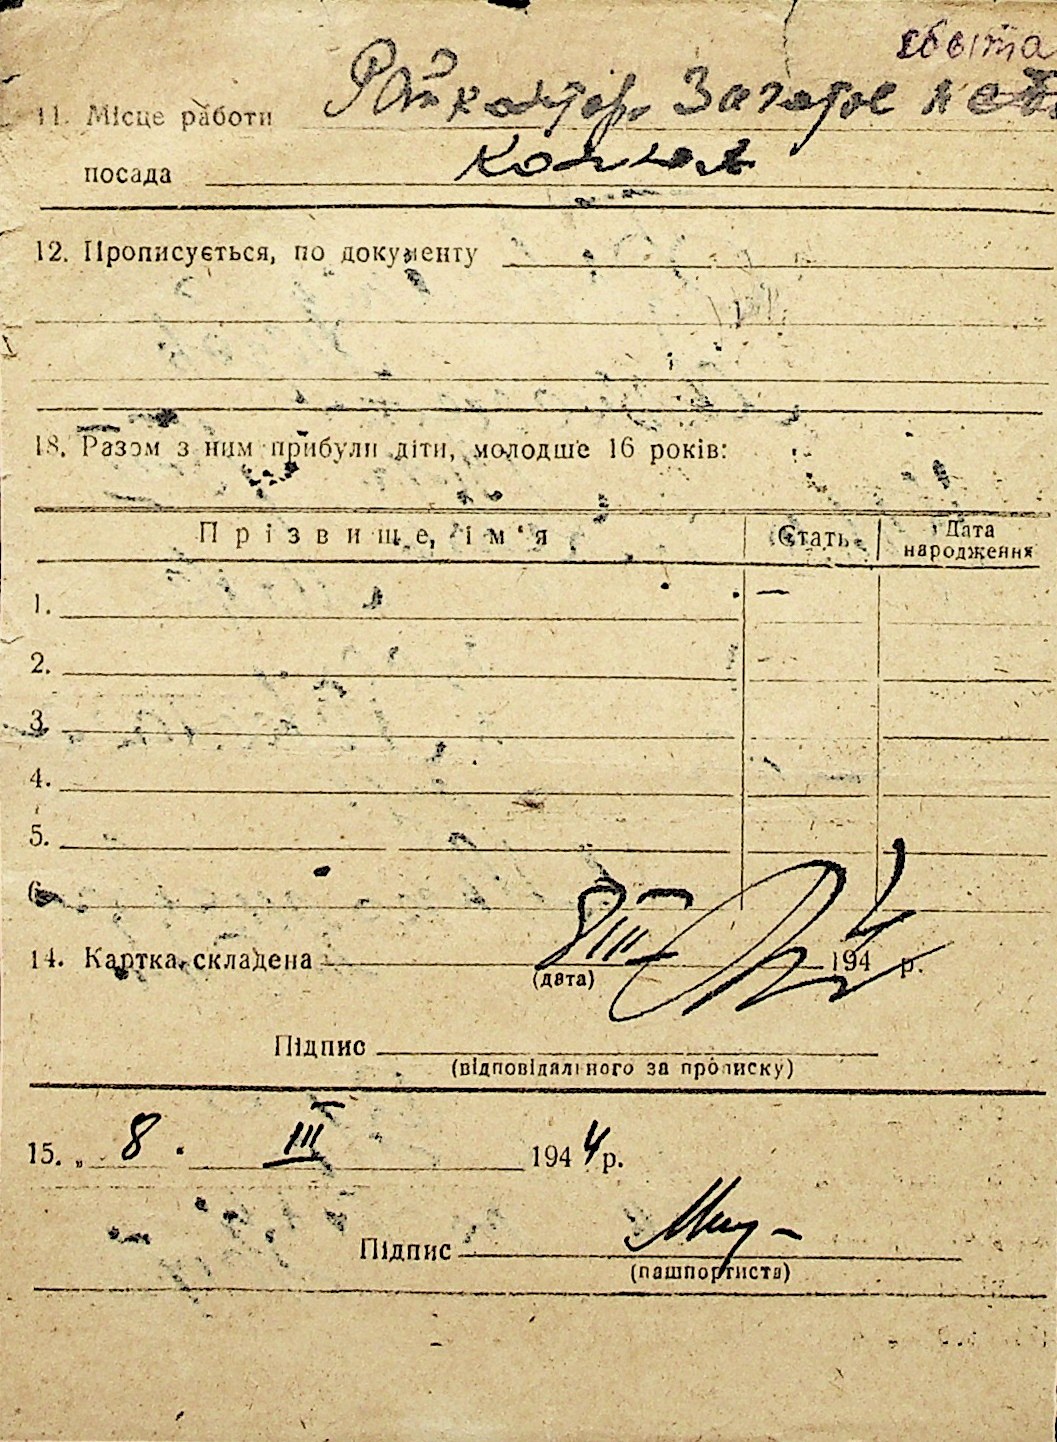 сбыта
11. Місце работи Райконтор. Заготс
посада
12. Прописується, по документу
13. Разом з ним прибули діти, молодше 16 років:
Прізвище, ім'я Стать Дата народження
1.
2.
3.
4.
5.
6.
14. Картка складена 8 III 1944 р.
(дата)
Підпис
(відповідального за прописку)
15. „ 8 . III 1944 р.
Підпис
(пашпортиста)